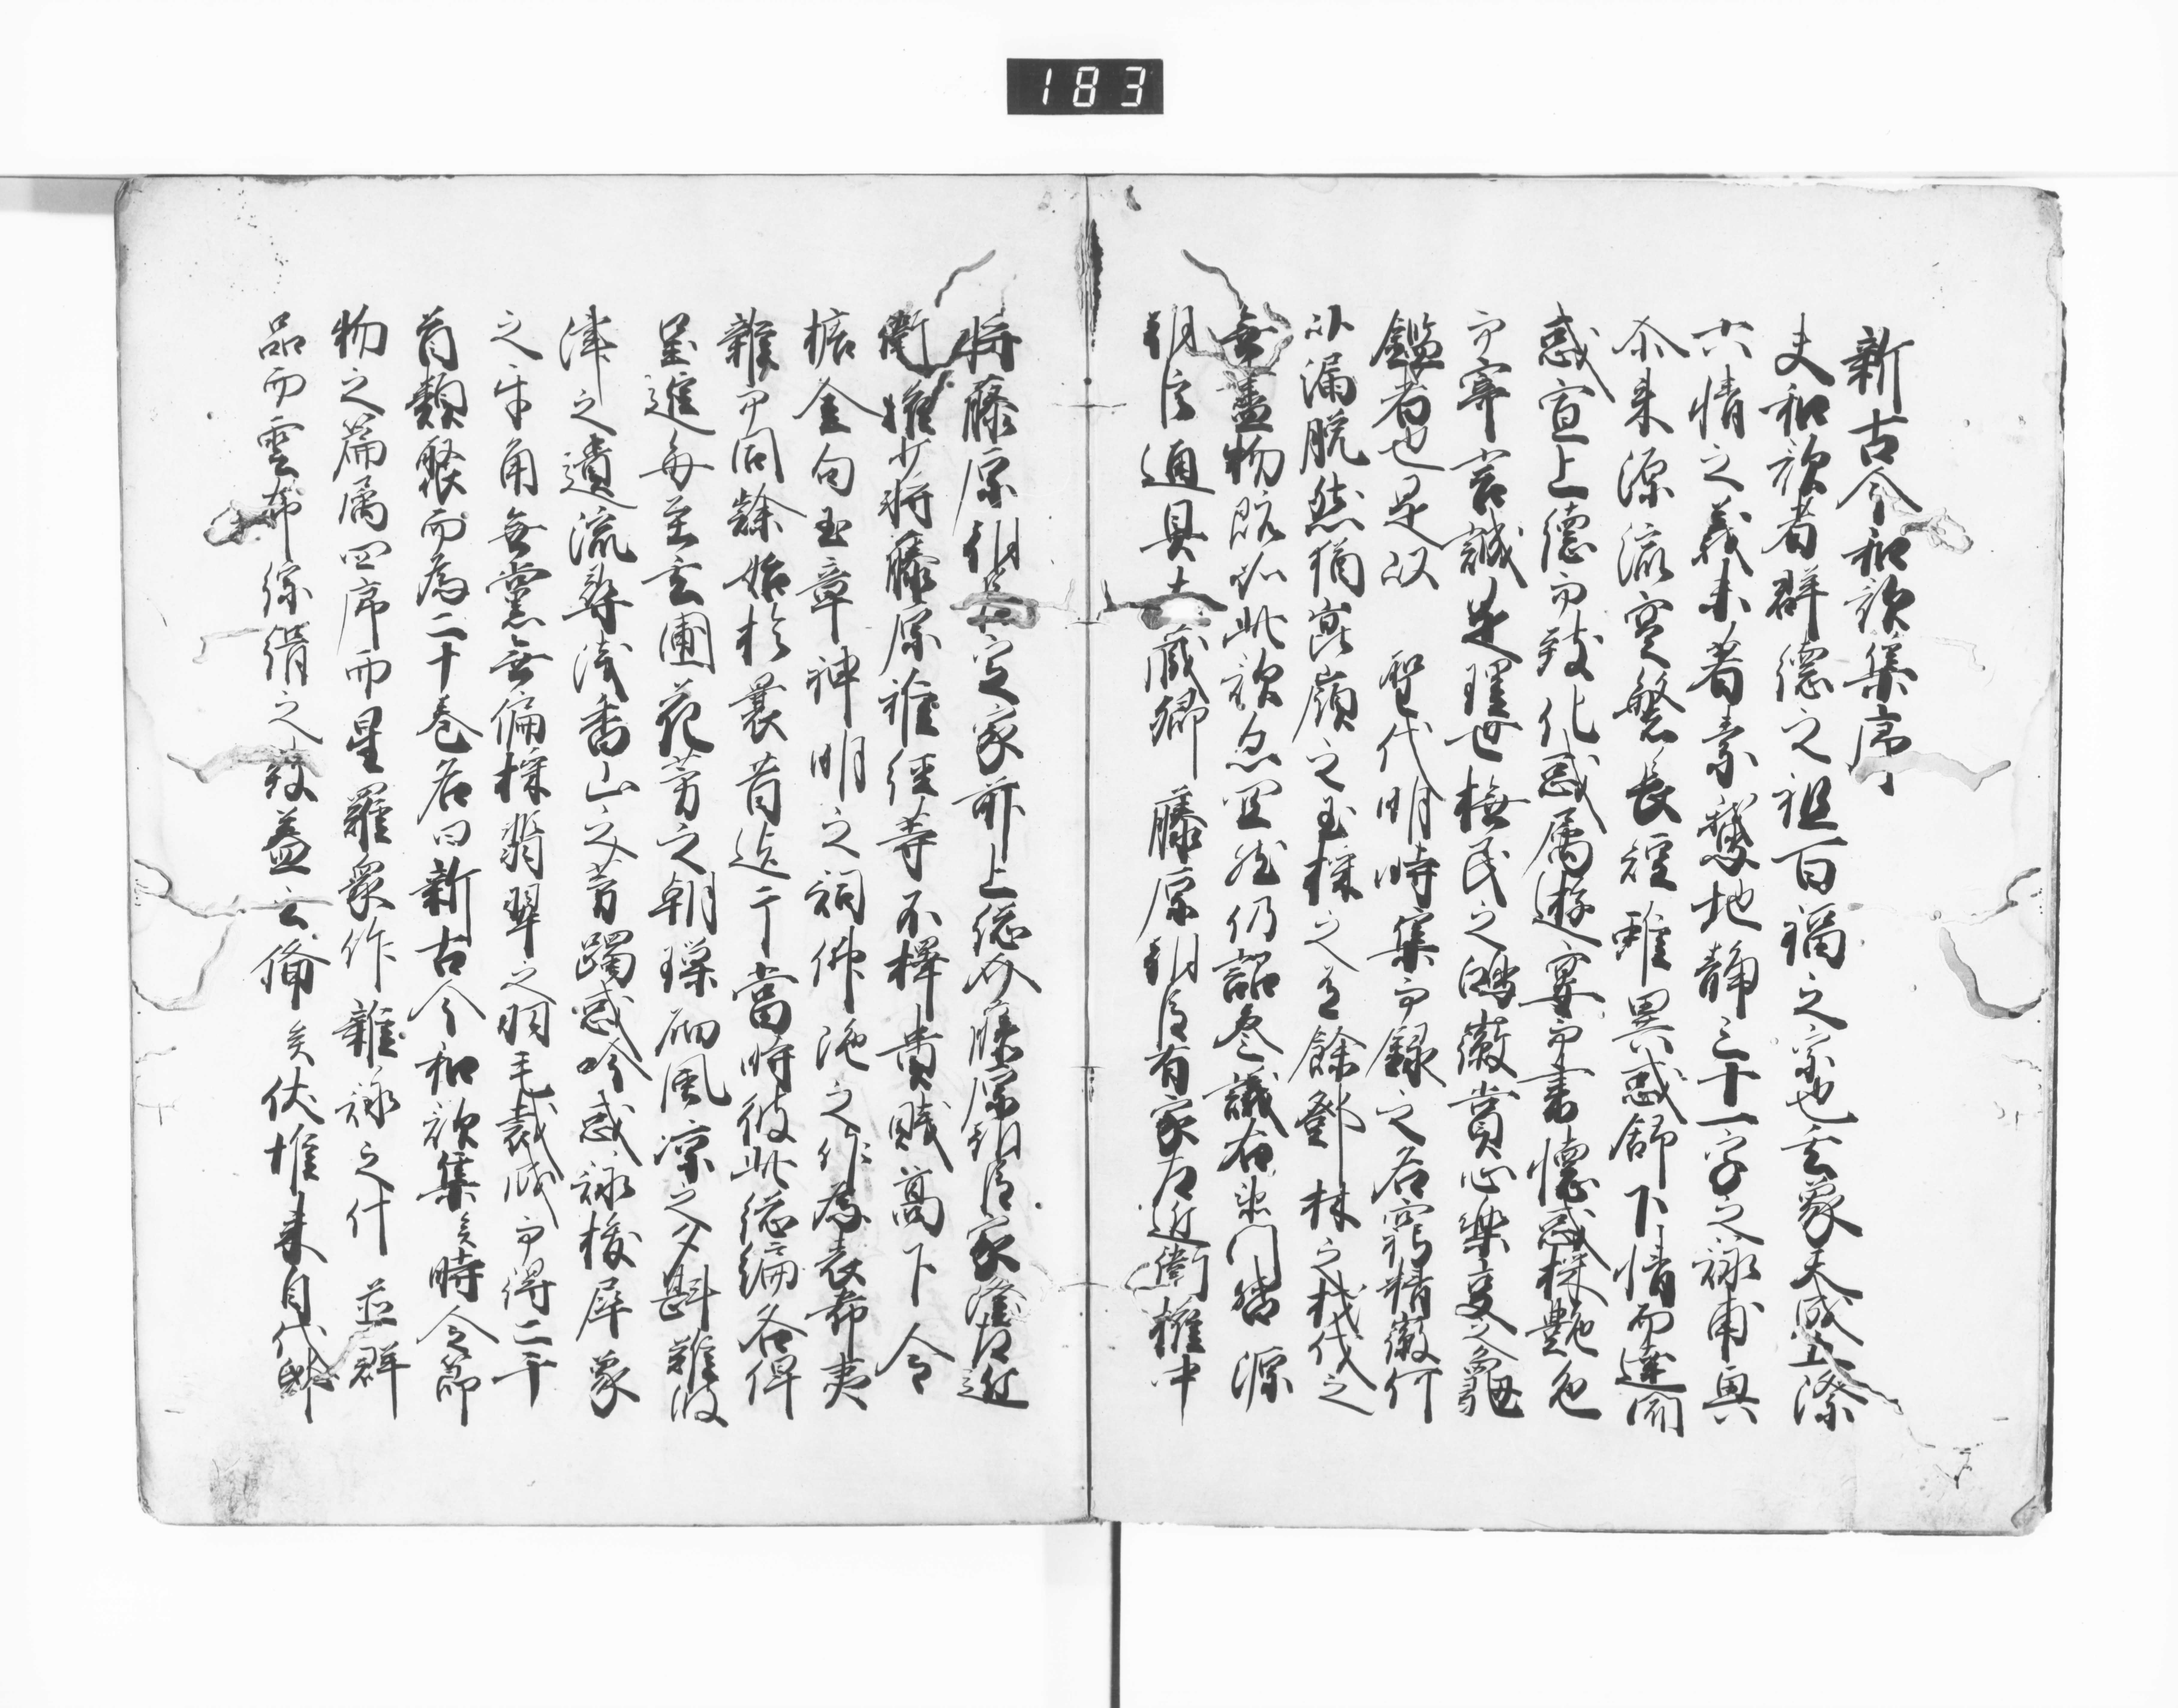 183
新古今和歌集序
夫和歌者群徳之祖百福之宗也玄象天成五際
六情之義未著素鵞地静三十一字之詠甫興
尒来源流寔繁長短雖異或舒下情而達聞
或宣上徳而致化或属遊宴而書懐或採艶色
而寄言誠是理世撫民之鴻徽賞心楽事之亀
鑑者也是以　聖代明時集而録之各窮精微何
以漏脱然猶崑嶺之玉採之有餘鄧林之材伐之
無盡物既如此歌亦宜然仍詔参議右衛門督源
朝臣通具大蔵卿藤原朝臣有家左近衛権中
将藤原朝臣定家前上総介藤原朝臣家隆左近
衛権少将藤原雅経等不擇貴賤高下令
摭金句玉章神明之詞佛陁之作為表希夷
雑而同隸始於曩昔迄于當時彼此総編各俾
呈進毎至玄圃花芳之朝璅砌風凉之夕斟難波
津之遺流尋浅香山之芳躅或吟或詠抜犀象
之牙角無黨無偏採翡翠之羽毛裁成而得二千
首類聚而為二十巻名曰新古今和歌集矣時令節
物之篇属四序而星羅衆作雑詠之什並群
品而雲布綜緝之致蓋云備矣伏惟来自代邸